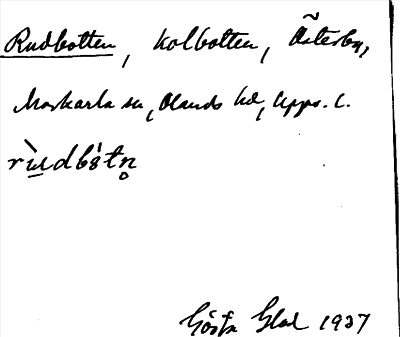 Rudbotten, Kolbotten, Österby,
Morkarla sn, Olands hd, Upps. l.
rùdbó̀tn̥
Gösta Glad 1937